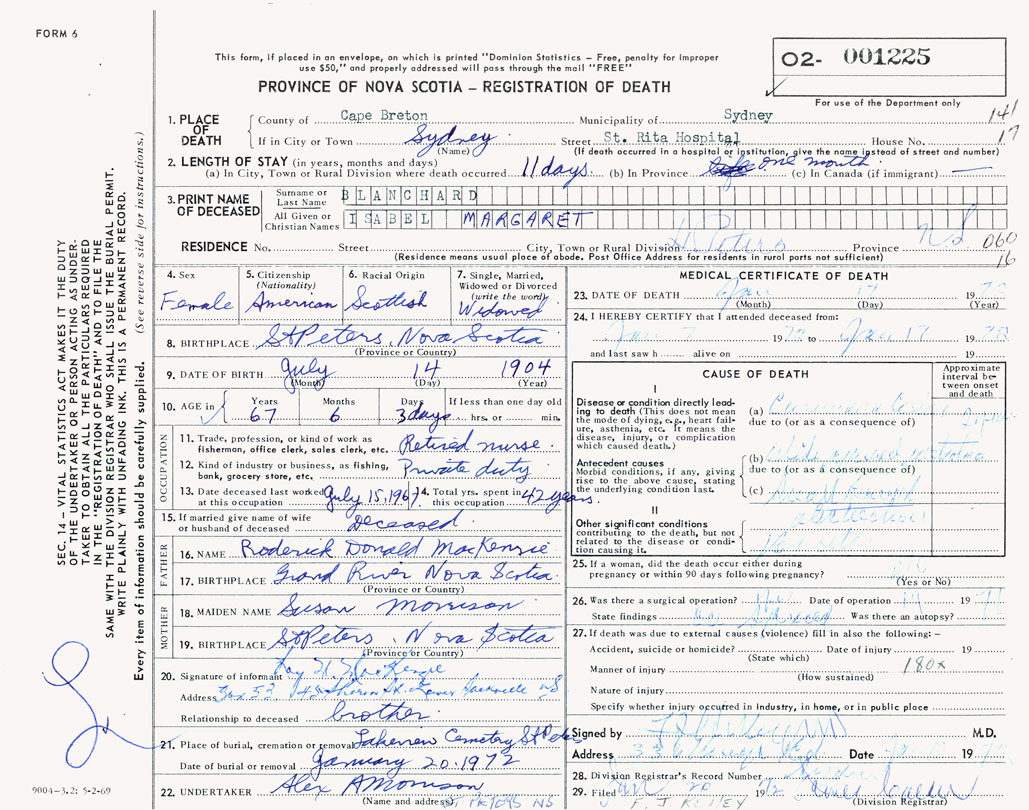 FORM 6
This form, if placed in an envelope, on which is printed "Dominion Statistics – Free, penalty for improper
use $50," and properly addressed will pass through the mail "FREE"
PROVINCE OF NOVA SCOTIA – REGISTRATION OF DEATH
02- 001225
For use of the Department only
141
17
1. PLACE OF DEATH
County of Cape Breton Municipality of Sydney
If in City or Town Sydney (Name) Street St. Rita Hospital House No.
(If death occurred in a hospital or institution, give the name instead of street and number)
2. LENGTH OF STAY (in years, months and days)
(a) In City, Town or Rural Division where death occurred 11 days. (b) In Province one month. (c) In Canada (if immigrant) —
3. PRINT NAME OF DECEASED
Surname or Last Name BLANCHARD
All Given or Christian Names ISABEL MARGARET
RESIDENCE No. Street City, Town or Rural Division St Peters Province NS
060
16
(Residence means usual place of abode. Post Office Address for residents in rural parts not sufficient)
4. Sex Female
5. Citizenship (Nationality) American
6. Racial Origin Scottish
7. Single, Married, Widowed or Divorced (write the word) Widowed
8. BIRTHPLACE St Peters, Nova Scotia
(Province or Country)
9. DATE OF BIRTH July 14 1904
(Month) (Day) (Year)
10. AGE in Years 67 Months 6 Days 3 days If less than one day old hrs. or min.
OCCUPATION
11. Trade, profession, or kind of work as fisherman, office clerk, sales clerk, etc. Retired nurse.
12. Kind of industry or business, as fishing, bank, grocery store, etc. Private duty
13. Date deceased last worked at this occupation July 15, 1967 14. Total yrs. spent in this occupation 42 years.
15. If married give name of wife or husband of deceased deceased.
FATHER
16. NAME Roderick Donald MacKenzie
17. BIRTHPLACE Grand River Nova Scotia.
(Province or Country)
MOTHER
18. MAIDEN NAME Susan Morrison
19. BIRTHPLACE St Peters, Nova Scotia
(Province or Country)
20. Signature of informant MacKenzie
Address Box 53 NS
Relationship to deceased brother
21. Place of burial, cremation or removal Lakeview Cemetery St Peters
Date of burial or removal January 20. 1972
22. UNDERTAKER Alex A Morrison
(Name and address) St Peters NS
MEDICAL CERTIFICATE OF DEATH
23. DATE OF DEATH Jan 17 1972
(Month) (Day) (Year)
24. I HEREBY CERTIFY that I attended deceased from:
Jan 7 1972 to Jan 17 1972
and last saw h alive on 19
CAUSE OF DEATH
Approximate interval between onset and death
I
Disease or condition directly leading to death (This does not mean the mode of dying, e.g., heart failure, asthenia, etc. It means the disease, injury, or complication which caused death.)
(a)
due to (or as a consequence of)
Antecedent causes
Morbid conditions, if any, giving rise to the above cause, stating the underlying condition last.
(b)
due to (or as a consequence of)
(c)
II
Other significant conditions contributing to the death, but not related to the disease or condition causing it.
25. If a woman, did the death occur either during pregnancy or within 90 days following pregnancy?
(Yes or No)
26. Was there a surgical operation? Date of operation 19 71
State findings Was there an autopsy?
27. If death was due to external causes (violence) fill in also the following: –
Accident, suicide or homicide? Date of injury 19
(State which)
Manner of injury 180x
(How sustained)
Nature of injury
Specify whether injury occurred in industry, in home, or in public place
Signed by M.D.
Address Date 19 72
28. Division Registrar's Record Number
29. Filed Jan 20 1972
(Division Registrar)
SEC. 14 – VITAL STATISTICS ACT MAKES IT THE DUTY
OF THE UNDERTAKER OR PERSON ACTING AS UNDER-
TAKER TO OBTAIN ALL THE PARTICULARS REQUIRED
IN THE "REGISTRATION OF DEATH" AND TO FILE THE
SAME WITH THE DIVISION REGISTRAR WHO SHALL ISSUE THE BURIAL PERMIT.
WRITE PLAINLY WITH UNFADING INK. THIS IS A PERMANENT RECORD.
Every item of information should be carefully supplied. (See reverse side for instructions.)
9004-3.2: 5-2-69